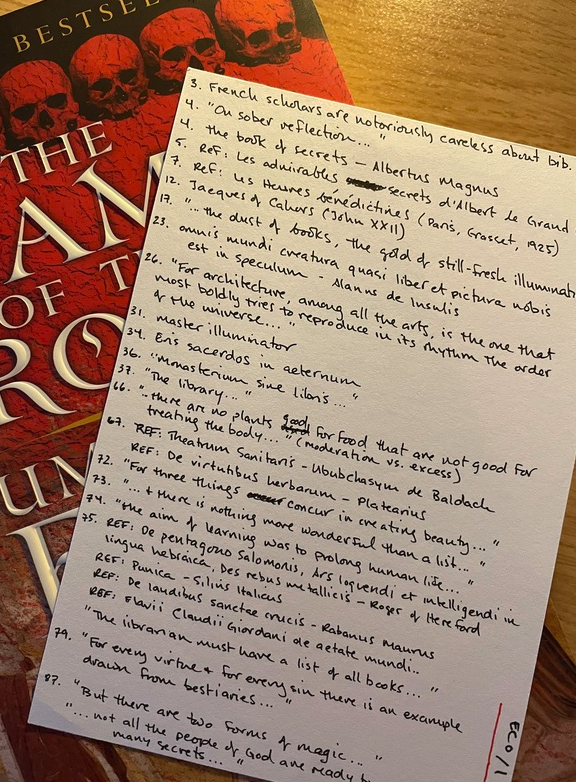 BESTSEL
THE
AM
OF T
RO
UM
E
3. French scholars are notoriously careless about bib.
4. "On sober reflection..."
4. The book of secrets – Albertus Magnus
5. REF: Les admirables secrets d'Albert Le Grand
7. REF: Les Heures bénédictines (Paris, Grasset, 1925)
12. Jacques of Cahors (John XXII)
17. "... the dust of books, the gold of still-fresh illuminati
23. omnis mundi creatura quasi liber et pictura nobis
est in speculum – Alanus de Insulis
26. "For architecture, among all the arts, is the one that
most boldly tries to reproduce in its rhythm the order
of the universe..."
31. master illuminator
34. Eris sacerdos in aeternum
36. "Monasterium sine libris..."
37. "The library..."
66. "..there are no plants good for food that are not good for
treating the body..." (moderation vs. excess)
67. REF: Theatrum Sanitatis – Ububchasym de Baldach
REF: De virtutibus herbarum – Platearius
72. "For three things concur in creating beauty..."
73. "... & there is nothing more wonderful than a list..."
74. "the aim of learning was to prolong human life..."
75. REF: De pentagono Salomonis, Ars loquendi et intelligendi in
lingua hebraica, Des rebus metallicis – Roger of Hereford
REF: Punica – Silius Italicus
REF: De laudibus sanctae crucis – Rabanus Maurus
REF: Flavii Claudii Giordani de aetate mundi..
"The librarian must have a list of all books..."
79. "For every virtue & for every sin there is an example
drawn from bestiaries..."
87. "But there are two forms of magic..."
"... not all the people of God are ready
many secrets..."
ECO/1